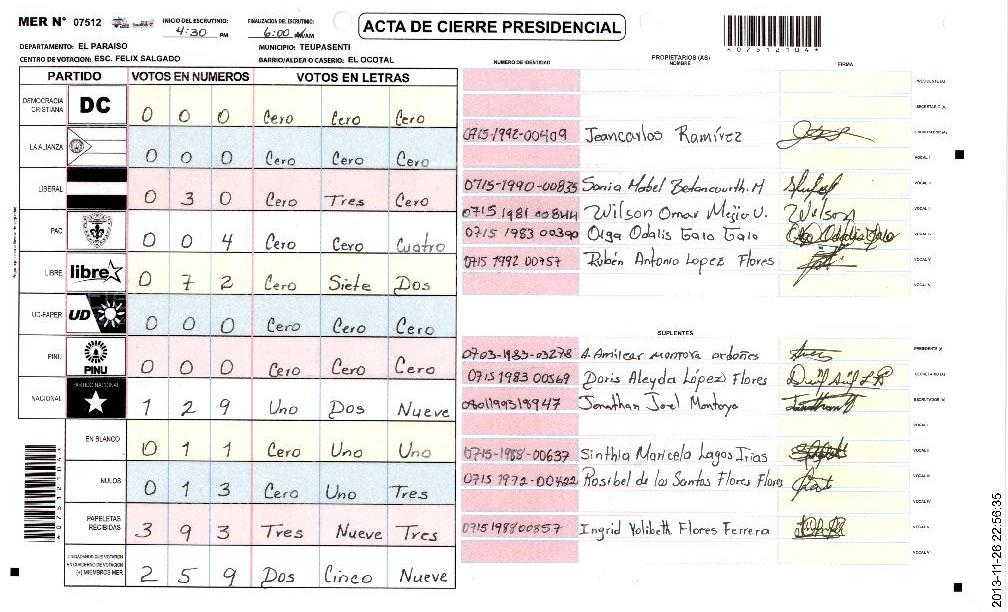 MER N° 07512
INICIO DEL ESCRUTINIO: 4:30 PM
FINALIZACION DEL ESCRUTINIO: 6:00 AM
ACTA DE CIERRE PRESIDENCIAL
07512104
DEPARTAMENTO: EL PARAISO
MUNICIPIO: TEUPASENTI
CENTRO DE VOTACION: ESC. FELIX SALGADO
BARRIO/ALDEA O CASERIO: EL OCOTAL
PARTIDO VOTOS EN NUMEROS VOTOS EN LETRAS
DEMOCRACIA CRISTIANA DC 0 0 0 Cero Cero Cero
LA ALIANZA 0 0 0 Cero Cero Cero
LIBERAL 0 3 0 Cero Tres Cero
PAC 0 0 4 Cero Cero Cuatro
LIBRE libre 0 7 2 Cero Siete Dos
UD-FAPER UD 0 0 0 Cero Cero Cero
PINU PINU 0 0 0 Cero Cero Cero
NACIONAL PARTIDO NACIONAL 1 2 9 Uno Dos Nueve
EN BLANCO 0 1 1 Cero Uno Uno
NULOS 0 1 3 Cero Uno Tres
PAPELETAS RECIBIDAS 3 9 3 Tres Nueve Tres
CIUDADANOS QUE VOTARON EN CUADERNO DE VOTACION (+) MIEMBROS MER 2 5 9 Dos Cinco Nueve
PROPIETARIOS (AS)
NUMERO DE IDENTIDAD NOMBRE FIRMA
PRESIDENTE (A)
SECRETARIO (A)
0715-1992-00409 Jeancarlos Ramírez ESCRUTADOR (A)
VOCAL I
0715-1990-00835 Sonia Mabel Betancourth. M VOCAL II
0715 1981 00844 Wilson Omar Mejia U. Wilson VOCAL III
0715 1983 00390 Olga Odalis Galo Galo Olga Odalis Galo VOCAL IV
0715 1992 00757 Rubén Antonio Lopez Flores VOCAL V
SUPLENTES
0703-1983-03278 A. Amilcar montoya ordoñes PRESIDENTE (A)
0715 1983 00569 Doris Aleyda López Flores SECRETARIO (A)
0801199318947 Jonathan Joel Montoya ESCRUTADOR (A)
VOCAL I
0715-1988-00637 Sinthia Maricela Lagos Irias VOCAL II
0715 1972-00422 Rosibel de los Santos Flores Flores VOCAL III
VOCAL IV
0715198800857 Ingrid Yolibeth Flores Ferrera VOCAL V
2013-11-26 22:56:35